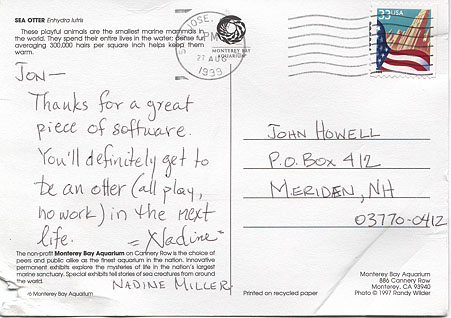 SEA OTTER Enhydra lutris
These playful animals are the smallest marine mammals in
the world. They spend their entire lives in the water; dense fur
averaging 300,000 hairs per square inch helps keep them
warm.
SAN JOSE,
PM
27 AUG
1999
MONTEREY BAY
AQUARIUM
33USA
Jon—
Thanks for a great
piece of software.
You'll definitely get to
be an otter (all play,
no work) in the next
life.
=Nadine=
JOHN HOWELL
P.O. BOX 412
MERIDEN, NH
03770-0412
The non-profit Monterey Bay Aquarium on Cannery Row is the choice of
peers and public alike as the finest aquarium in the nation. Innovative
permanent exhibits explore the mysteries of life in the nation's largest
marine sanctuary. Special exhibits tell stories of sea creatures from around
the world.
NADINE MILLER
© Monterey Bay Aquarium
Printed on recycled paper
Monterey Bay Aquarium
886 Cannery Row
Monterey, CA 93940
Photo © 1997 Randy Wilder